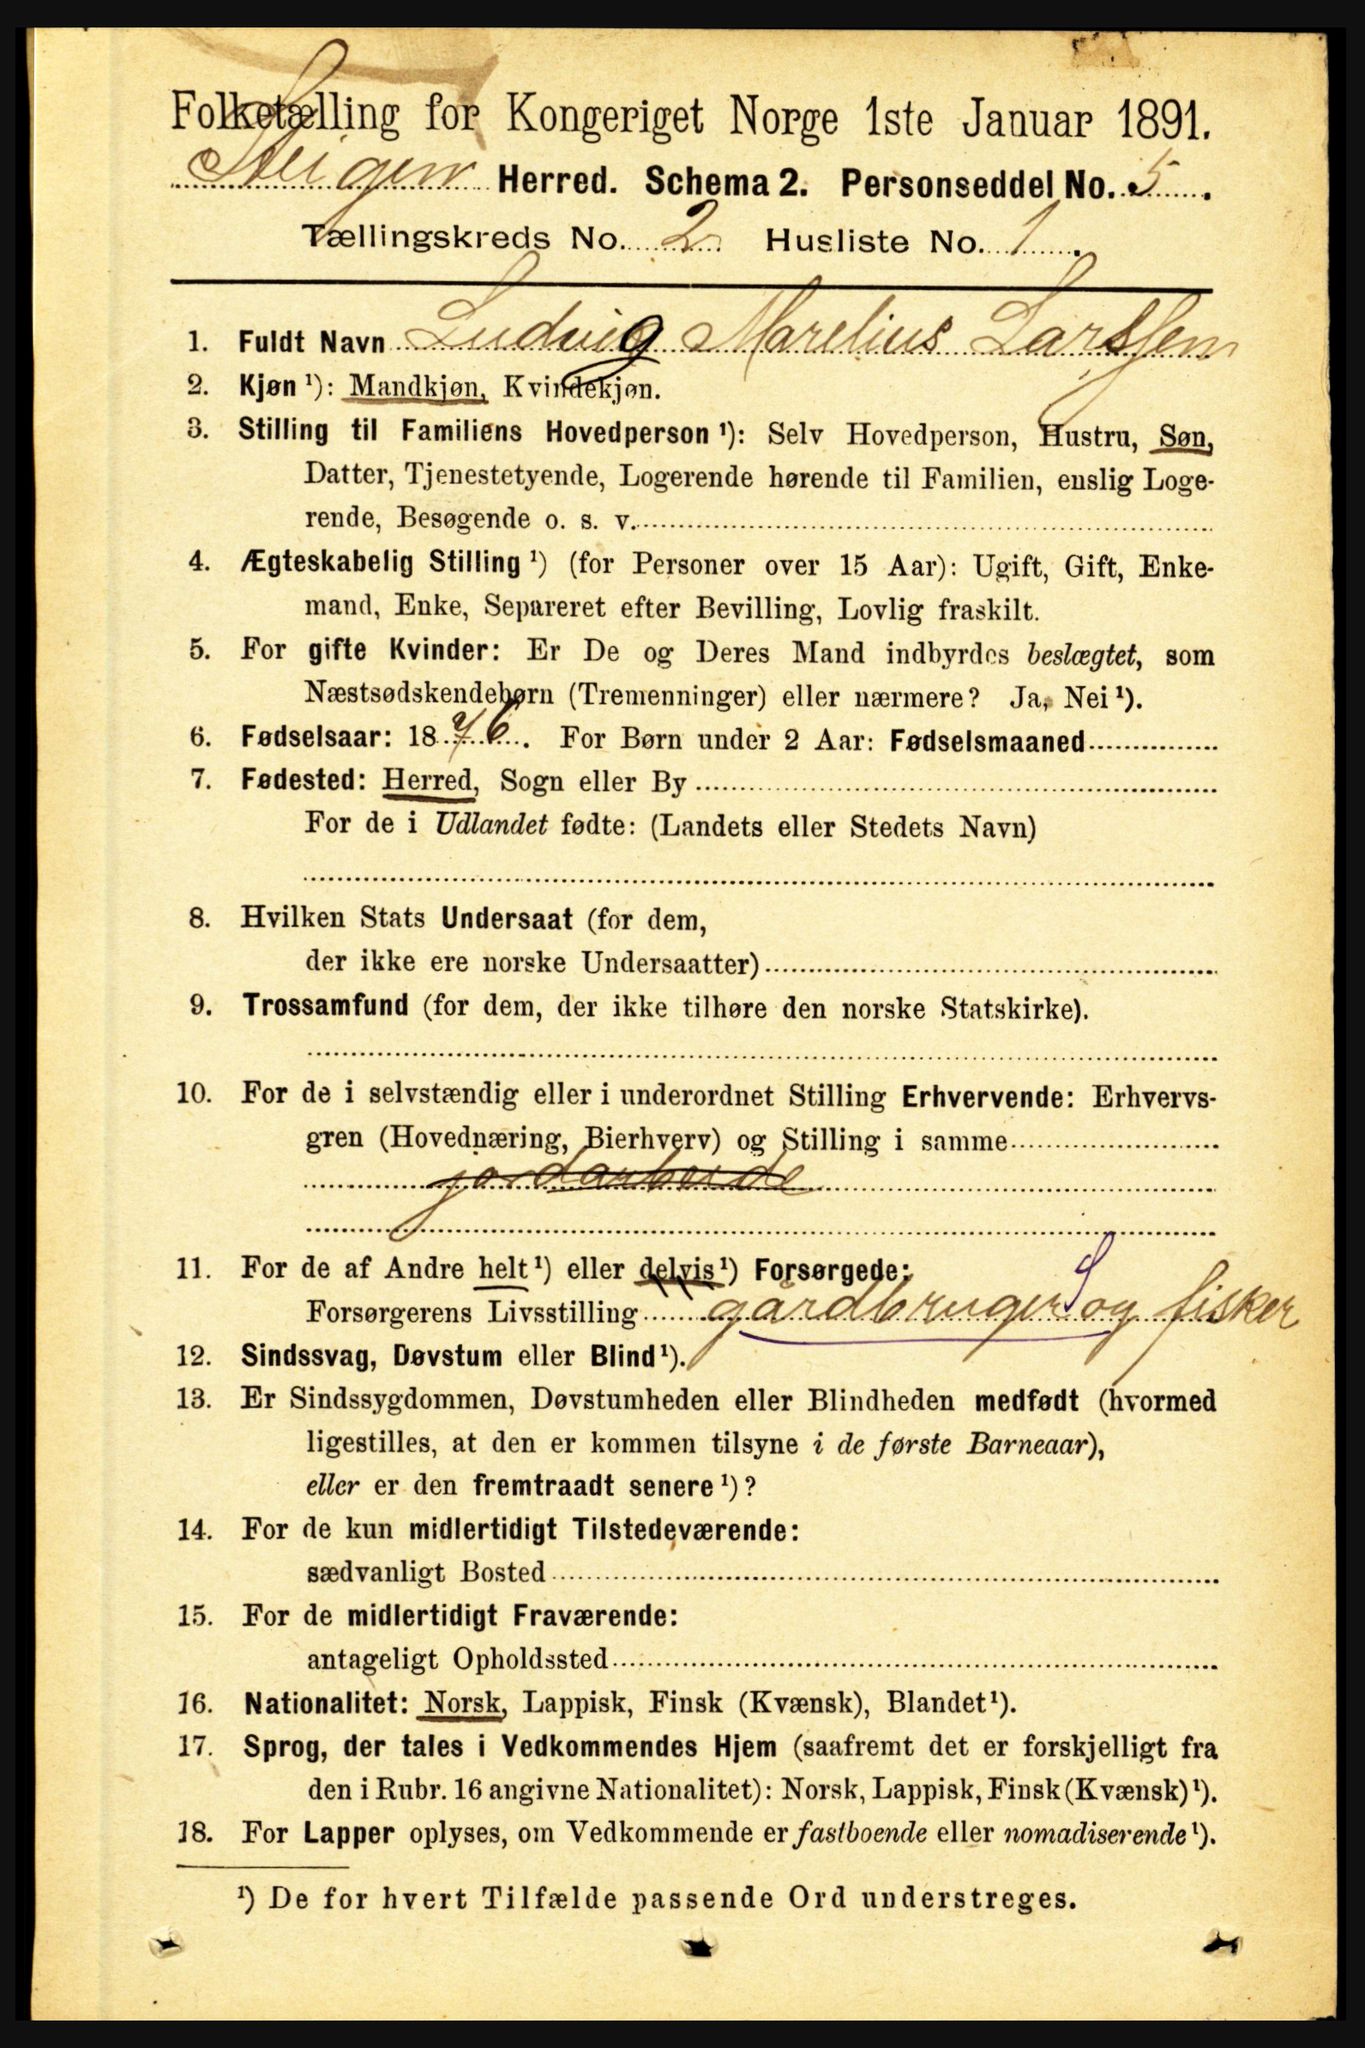 Folketælling for Kongeriget Norge 1ste Januar 1891.
Steigen Herred. Schema 2. Personseddel No. 5.
Tællingskreds No. 2 Husliste No. 1.
1. Fuldt Navn Ludvig Marelius Larssen
2. Kjøn ¹): Mandkjøn, Kvindekjøn.
3. Stilling til Familiens Hovedperson ¹): Selv Hovedperson, Hustru, Søn,
Datter, Tjenestetyende, Logerende hørende til Familien, enslig Loge-
rende, Besøgende o. s. v.
4. Ægteskabelig Stilling ¹) (for Personer over 15 Aar): Ugift, Gift, Enke-
mand, Enke, Separeret efter Bevilling, Lovlig fraskilt.
5. For gifte Kvinder: Er De og Deres Mand indbyrdes beslægtet, som
Næstsødskendebørn (Tremenninger) eller nærmere? Ja, Nei ¹).
6. Fødselsaar: 1876. For Børn under 2 Aar: Fødselsmaaned
7. Fødested: Herred, Sogn eller By
For de i Udlandet fødte: (Landets eller Stedets Navn)
8. Hvilken Stats Undersaat (for dem,
der ikke ere norske Undersaatter)
9. Trossamfund (for dem, der ikke tilhøre den norske Statskirke).
10. For de i selvstændig eller i underordnet Stilling Erhvervende: Erhvervs-
gren (Hovednæring, Bierhverv) og Stilling i samme
jordarbeide
11. For de af Andre helt ¹) eller delvis ¹) Forsørgede:
Forsørgerens Livsstilling gårdbruger S og fisker
12. Sindssvag, Døvstum eller Blind ¹).
13. Er Sindssygdommen, Døvstumheden eller Blindheden medfødt (hvormed
ligestilles, at den er kommen tilsyne i de første Barneaar),
eller er den fremtraadt senere ¹)?
14. For de kun midlertidigt Tilstedeværende:
sædvanligt Bosted
15. For de midlertidigt Fraværende:
antageligt Opholdssted
16. Nationalitet: Norsk, Lappisk, Finsk (Kvænsk), Blandet ¹).
17. Sprog, der tales i Vedkommendes Hjem (saafremt det er forskjelligt fra
den i Rubr. 16 angivne Nationalitet): Norsk, Lappisk, Finsk (Kvænsk) ¹).
18. For Lapper oplyses, om Vedkommende er fastboende eller nomadiserende ¹).
¹) De for hvert Tilfælde passende Ord understreges.